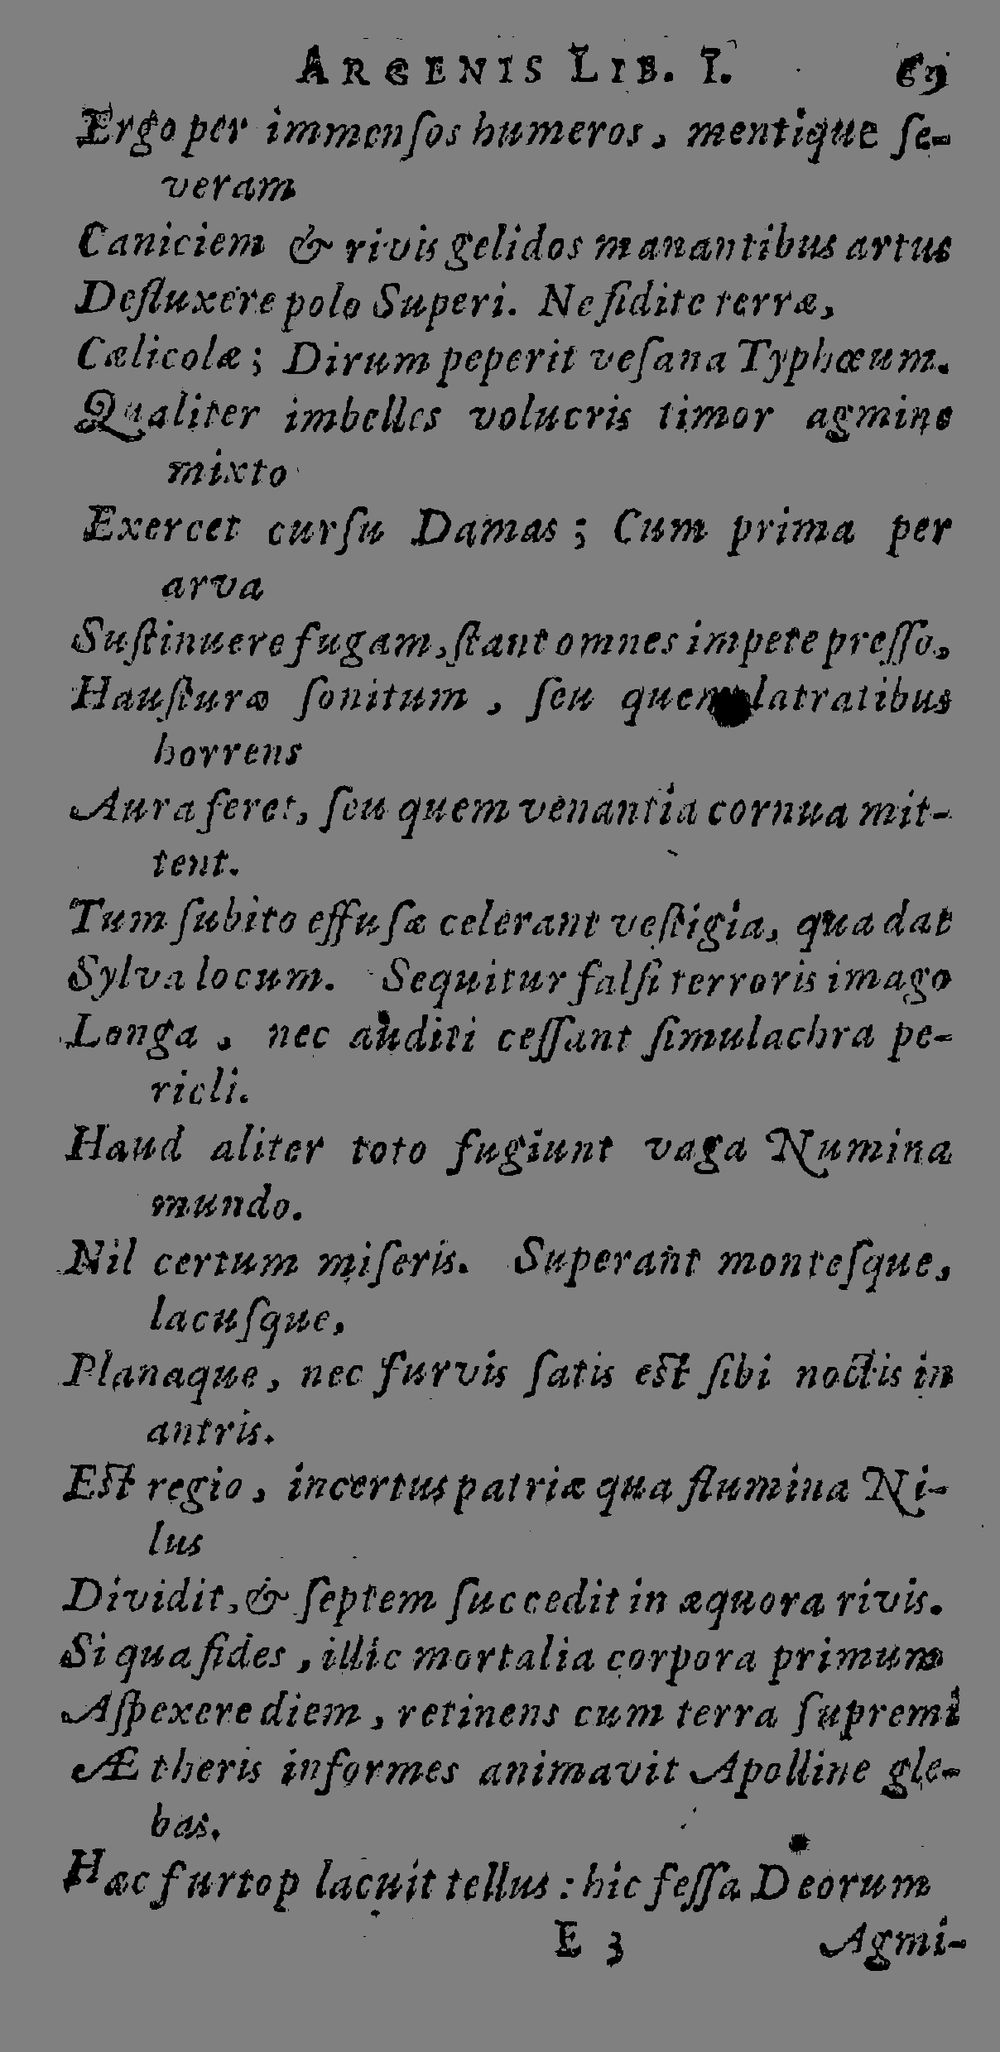 ARGENIS LIB. I. 69
Ergo per immensos humeros, mentique se-
veram
Caniciem & rivis gelidos manantibus artus
Defluxere polo Superi. Ne sidite terræ,
Cælicolæ; Dirum peperit vesana Typhœum.
Qualiter imbelles volucris timor agmine
mixto
Exercet cursu Damas; Cum prima per
arva
Sustinuere fugam, stant omnes impete presso,
Hausturæ sonitum, seu quem latratibus
horrens
Aura feret, seu quem venantia cornua mit-
tent.
Tum subito effusæ celerant vestigia, qua dat
Sylva locum. Sequitur falsi terroris imago
Longa, nec auditi cessant simulachra pe-
ricli.
Haud aliter toto fugiunt vaga Numina
mundo.
Nil certum miseris. Superant montesque,
lacusque,
Planaque, nec furvis satis est sibi noctis in
antris.
Est regio, incertus patriæ qua flumina Ni-
lus
Dividit, & septem succedit in æquora rivis.
Si qua fides, illic mortalia corpora primum
Aspexere diem, retinens cum terra supremi
Ætheris informes animavit Apolline gle-
bas.
Hæc furto placuit tellus: hic fessa Deorum
E 3 Agmi-